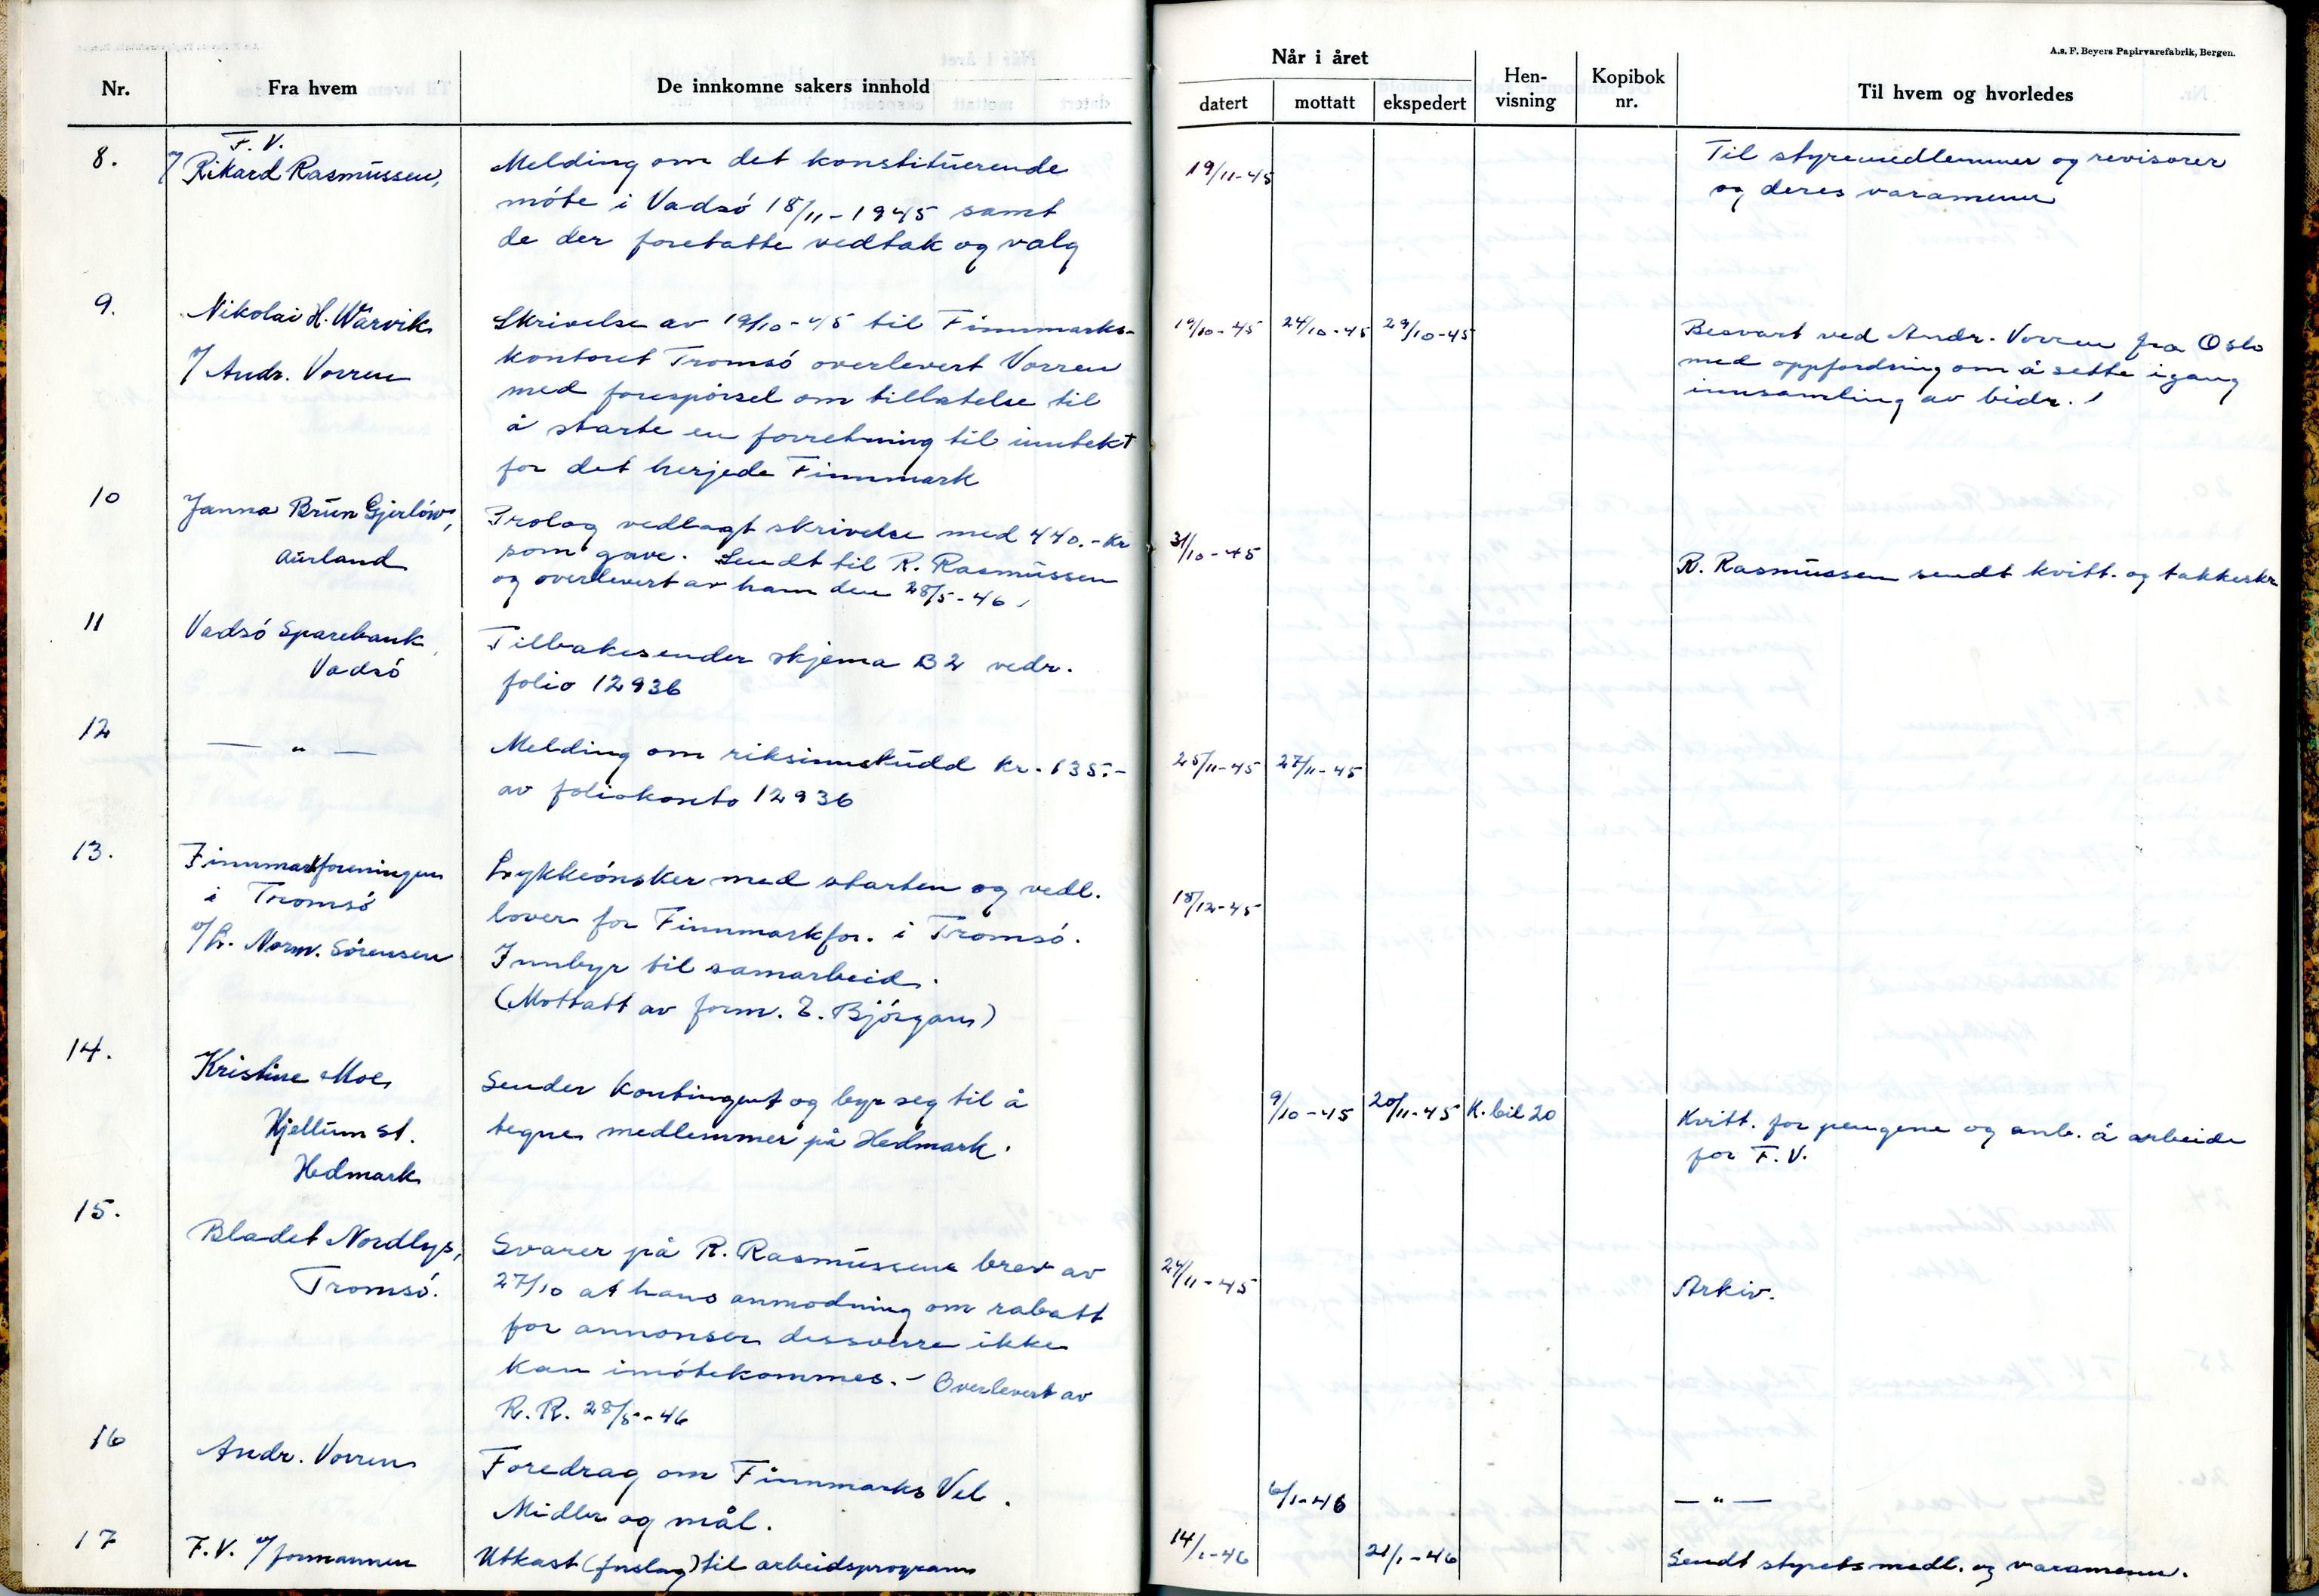 Nr. Fra hvem De innkomne sakers innhold
A.s. F. Beyers Papirvarefabrik, Bergen.
Når i året
datert mottatt ekspedert Hen-visning Kopibok nr. Til hvem og hvorledes
8.
F. V.
v/ Rikard Rasmussen,
Melding om det konstituerende
möte i Vadsö 18/11-1945 samt
de der foretatte vedtak og valg
19/11-45
Til styremedlemmer og revisorer
og deres varamenn
9.
Nikolai H. Wärvik
v/ Andr. Vorren
Skrivelse av 19/10-45 til Finnmarks-
kontoret Tromsö overlevert Vorren
med forespörsel om tillatelse til
å starte en forretning til inntekt
for det herjede Finnmark
19/10-45 24/10-45 29/10-45
Besvart ved Andr. Vorren fra Oslo
med oppfordring om å sette igang
innsamling av bidr.
10
Janna Brun Gjerlöw,
Aurland
Prolog vedlagt skrivelse med 440.- kr
som gave. Sendt til R. Rasmussen
og overlevert av ham den 28/5-46
31/10-45
R. Rasmussen sendt kvitt. og takkeskr.
11
Vadsö Sparebank,
Vadsö
Tilbakesender skjema B2 vedr.
folio 12936
12
— " —
Melding om riksinnskudd kr. 135.-
av foliokonto 12936
25/11-45 27/11-45
13.
Finnmarkforeningen
i Tromsö
v/ L. Norm. Sörensen
Lykkeönsker med starten og vedl.
lover for Finnmarkfor. i Tromsö.
Innbyr til samarbeid.
(Mottatt av form. E. Björgan)
18/12-45
14.
Kristine Moe,
Hjellum st.
Hedmark
Sender kontingent og byr seg til å
tegne medlemmer på Hedmark.
9/10-45 20/11-45 K. bil 20
Kvitt. for pengene og anb. å arbeide
for F. V.
15.
Bladet Nordlys,
Tromsö.
Svarer på R. Rasmussens brev av
27/10 at hans anmodning om rabatt
for annonser dessverre ikke
kan imötekommes. - Overlevert av
R. R. 28/5-46
24/11-45
Arkiv.
16
Andr. Vorren
Foredrag om Finnmarks Vel.
Midler og mål.
6/1-46
— " —
17
F. V. v/ formannen
Utkast (forslag) til arbeidsprogram
14/1-46 21/1-46
Sendt styrets medl. og varamenn.